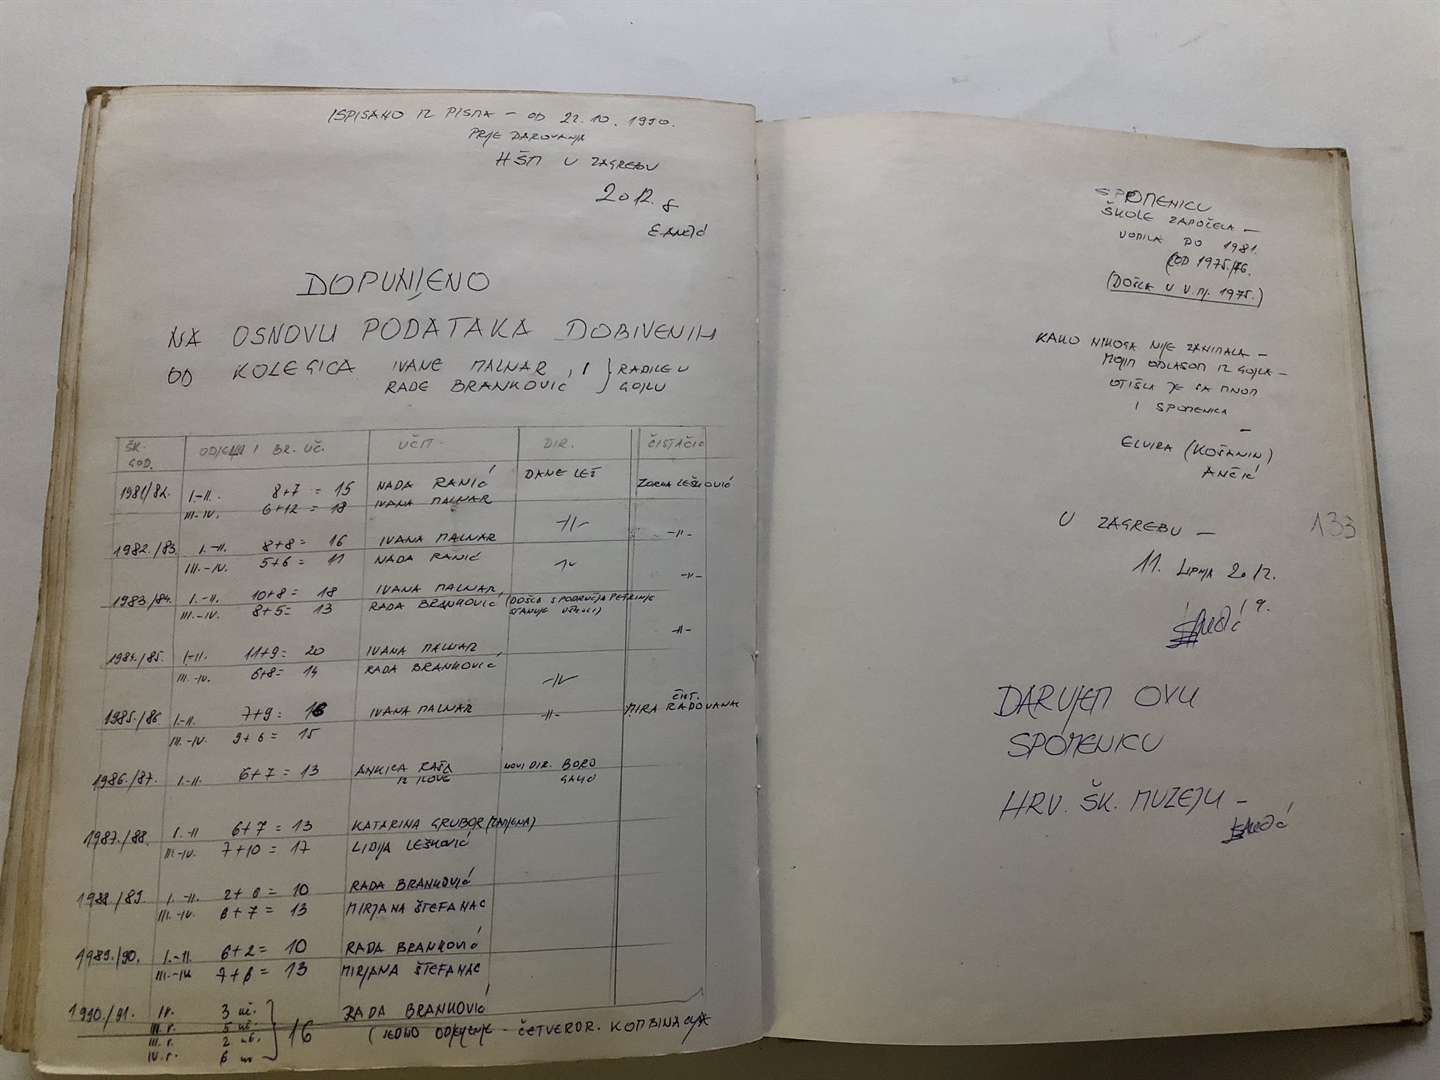 ISPISANO IZ PISMA – OD 22.10. 1990.
PRIJE DAROVANJA
HŠM U ZAGREBU
2012. g
E Ančić
DOPUNJENO
NA OSNOVU PODATAKA DOBIVENIH
OD KOLEGICA IVANE MALNAR, I } RADILE U
RADE BRANKOVIĆ } GOJLU
ŠK. GOD. ODJELI I BR. UČ. UČIT. DIR. ČISTAČIC
1981/82. I.-II. 8+7 = 15 NADA RANIĆ DANE LEŠ ZORKA LEŠKOVIĆ
III.-IV. 6+12 = 18 IVANA MALNAR
1982./83. I.-II. 8+8 = 16 IVANA MALNAR -II- -II-
III.-IV. 5+6 = 11 NADA RANIĆ
1983/84. I.-II. 10+8 = 18 IVANA MALNAR -II- -II-
III.-IV. 8+5= 13 RADA BRANKOVIĆ (DOŠLA S PODRUČJA PETRINJE
STANUJE U ŠKOLI)
1984./85. I.-II. 11+9= 20 IVANA MALNAR -II-
III.-IV. 6+8= 14 RADA BRANKOVIĆ
1985./86 I.-II. 7+9= 16 IVANA MALNAR -II- ČIST. MIRA RADOVANAC
III.-IV. 9+6= 15
1986./87. I.-II. 6+7 = 13 ANKICA RAŠA NOVI DIR. BORO
IZ ILOVE
1987./88. I.-II 6+7 = 13 KATARINA GRUBOR (ZAMJENA)
III.-IV. 7+10 = 17 LIDIJA LEŠKOVIĆ
1988./89. I.-II. 2+8 = 10 RADA BRANKOVIĆ
III.-IV. 6+7 = 13 MIRJANA ŠTEFANAC
1989./90. I.-II. 6+2= 10 RADA BRANKOVIĆ
III.-IV. 7+6= 13 MIRJANA ŠTEFANAC
1990./91. I r. 3 uč. RADA BRANKOVIĆ
II. r. 5 uč. } 16 (JEDNO ODJELJENJE - ČETVEROR. KOMBINACIJA
III. r. 2 uč.
IV. r. 6 uč
SPOMENICU
ŠKOLE ZAPOČELA –
VODILA DO 1981.
(OD 1975./76.
(DOŠLA U V. MJ. 1975.)
KAKO NIKOGA NIJE ZANIMALA –
MOJIM ODLASKOM IZ GOJLA –
OTIŠLA JE SA MNOM
I SPOMENICA
–
ELVIRA (KOŠANIN)
ANČIĆ
U ZAGREBU –
133
11. LIPNJA 2012.
g.
Ančić
DARUJEM OVU
SPOMENICU
HRV. ŠK. MUZEJU –
EAnčić